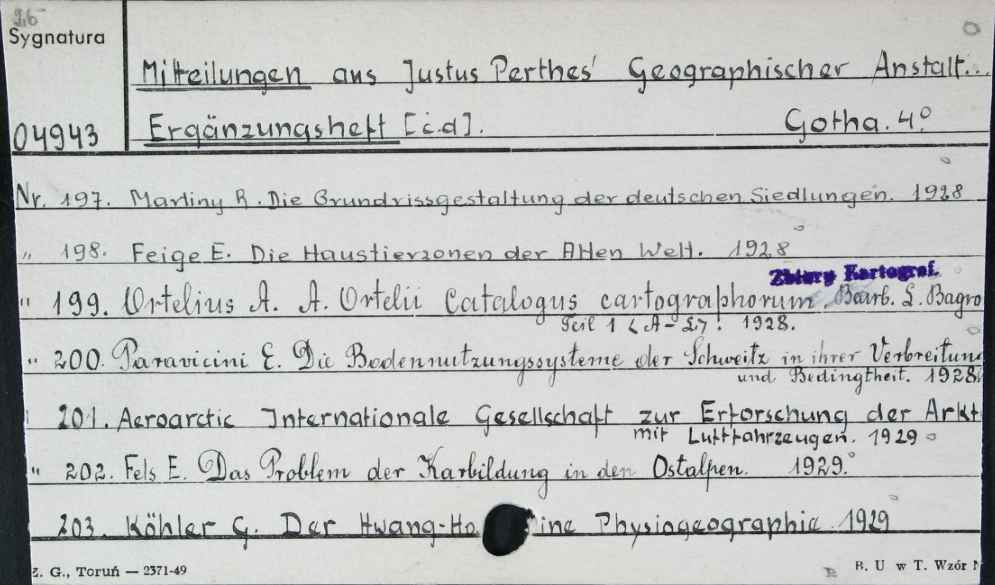 Sygnatura
04943
Mitteilungen aus Justus Perthes' Geographischer Anstalt...
Ergänzungsheft [c.d]. Gotha. 4°
Nr. 197. Martiny R. Die Grundrissgestaltung der deutschen Siedlungen. 1928
" 198. Feige E. Die Haustierzonen der Alten Welt. 1928
Zbiory Kartograf.
" 199. Ortelius A. A. Ortelii Catalogus cartographorum Bearb. L. Bagro
Teil 1 <A-L>. 1928.
" 200. Paravicini E. Die Bodennutzungssysteme der Schweitz in ihrer Verbreitung
und Bedingtheit. 1928.
201. Aeroarctic Internationale Gesellschaft zur Erforschung der Arkt
mit Luftfahrzeugen. 1929
" 202. Fels E. Das Problem der Karbildung in den Ostalpen. 1929.
203. Köhler G. Der Hwang-Ho ine Physiogeographie 1929
Z. G., Toruń — 2371-49
B. U w T. Wzór